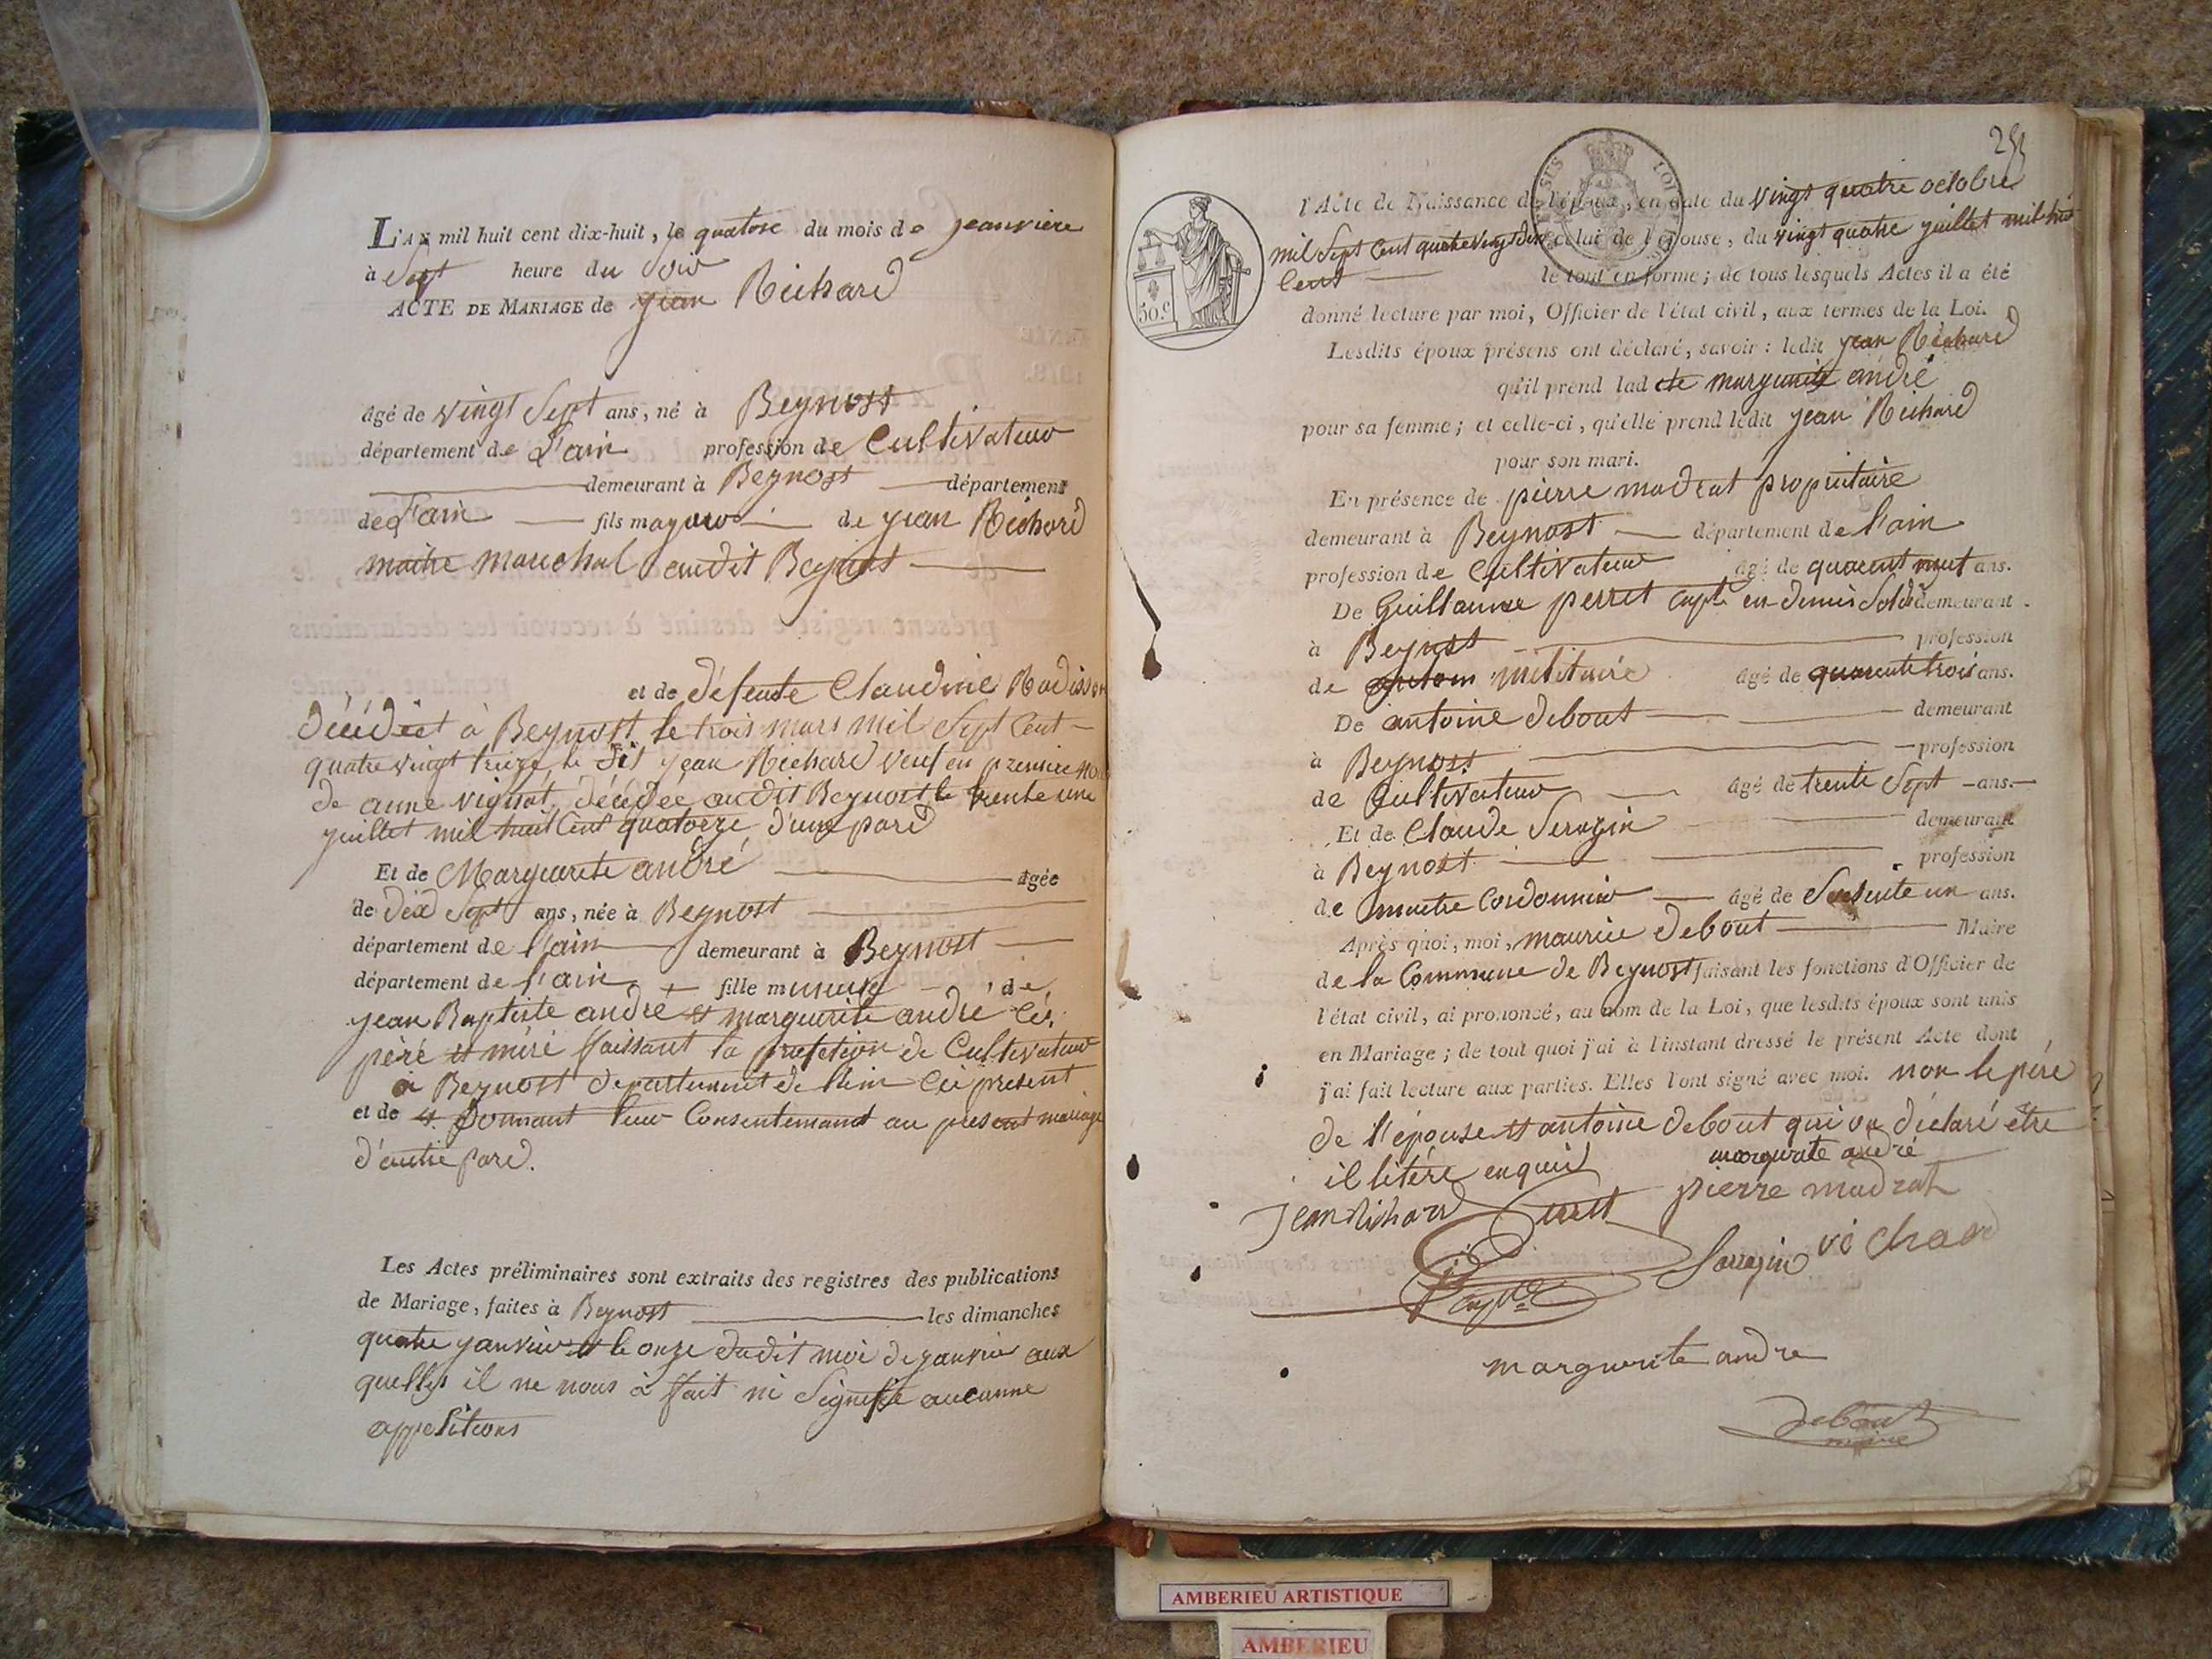 L'AN mil huit cent dix-huit, le quatorse du mois de jeanviere
à Sept heure du Soir
ACTE DE MARIAGE de jean Richard
âgé de vingt Sept ans, né à Beynost
département de L'ain profession de Cultivateur
demeurant à Beynost département
de L'ain fils mageur de jean Richard
maitre marechal audit Beynost
et de défeute Claudine Radisson
décédéet à Beynost le trois mars mil Sept Cent
quatre vingt treize le dit jean Richard veuf en premiere
de anne vignat, décédée audit Beynost le trente une
juillet mil huit Cent quatorze d'une pard
Et de Marguerite andré agée
de dix Sept ans, née à Beynost
département de l'ain demeurant à Beynost
département de l'ain fille mineure de
jean Baptiste andré et marguerite andré Ces
péré et méré ffaissant la profetion de Cultivateur
à Beynost departement de l'ain Ci present
et de et Donnant leur Consentemand au present mariage
d'autre pard.
Les Actes préliminaires sont extraits des registres des publications
de Mariage, faites à Beynost les dimanches
quatre janvier et le onze dudit moi de janvier aux
quelles il ne nous à ffait ni Signiffie aucunne
oppositions
253
l'Acte de Naissance de l'époux, en date du vingt quatre octobre
mil Sept Cent quatre vingt dix celui de l'épouse, du vingt quatre juillet mil huit
Cent le tout en forme; de tous lesquels Actes il a été
50.c
donné lecture par moi, Officier de l'état civil, aux termes de la Loi.
Lesdits époux présens ont déclaré, savoir: ledit jean Richard
qu'il prend ladite marguerite andré
pour sa femme; et celle-ci, qu'elle prend ledit jean Richard
pour son mari.
En présence de pierre modrat propriétaire
demeurant à Beynost département de l'ain
profession de Cultivateur âgé de quarent ans.
De Guillaume perret Capte en demis Solde demeurant
à Beynost profession
de militaire âgé de quarente trois ans.
De antoine debout demeurant
à Beynost profession
de Cultivateur âgé de trente Sept ans.
Et de Claude Seragin demeurant
à Beynost profession
de maitre Cordonnier âgé de Soisente un ans.
Après quoi, moi, maurice debout Maire
de la Commune de Beynost faisant les fonctions d'Officier de
l'état civil, ai prononcé, au nom de la Loi, que lesdits époux sont unis
en Mariage; de tout quoi j'ai à l'instant dressé le présent Acte dont
j'ai fait lecture aux parties. Elles l'ont signé avec moi. non le péré
de l'épouse et antoine debout qui on déclaré être
il litéré enquis marguerite andré
jean Richard Perret pierre modrat
Capte Saragin richard
marguerite andre
debout
maire
AMBERIEU ARTISTIQUE
AMBERIEU